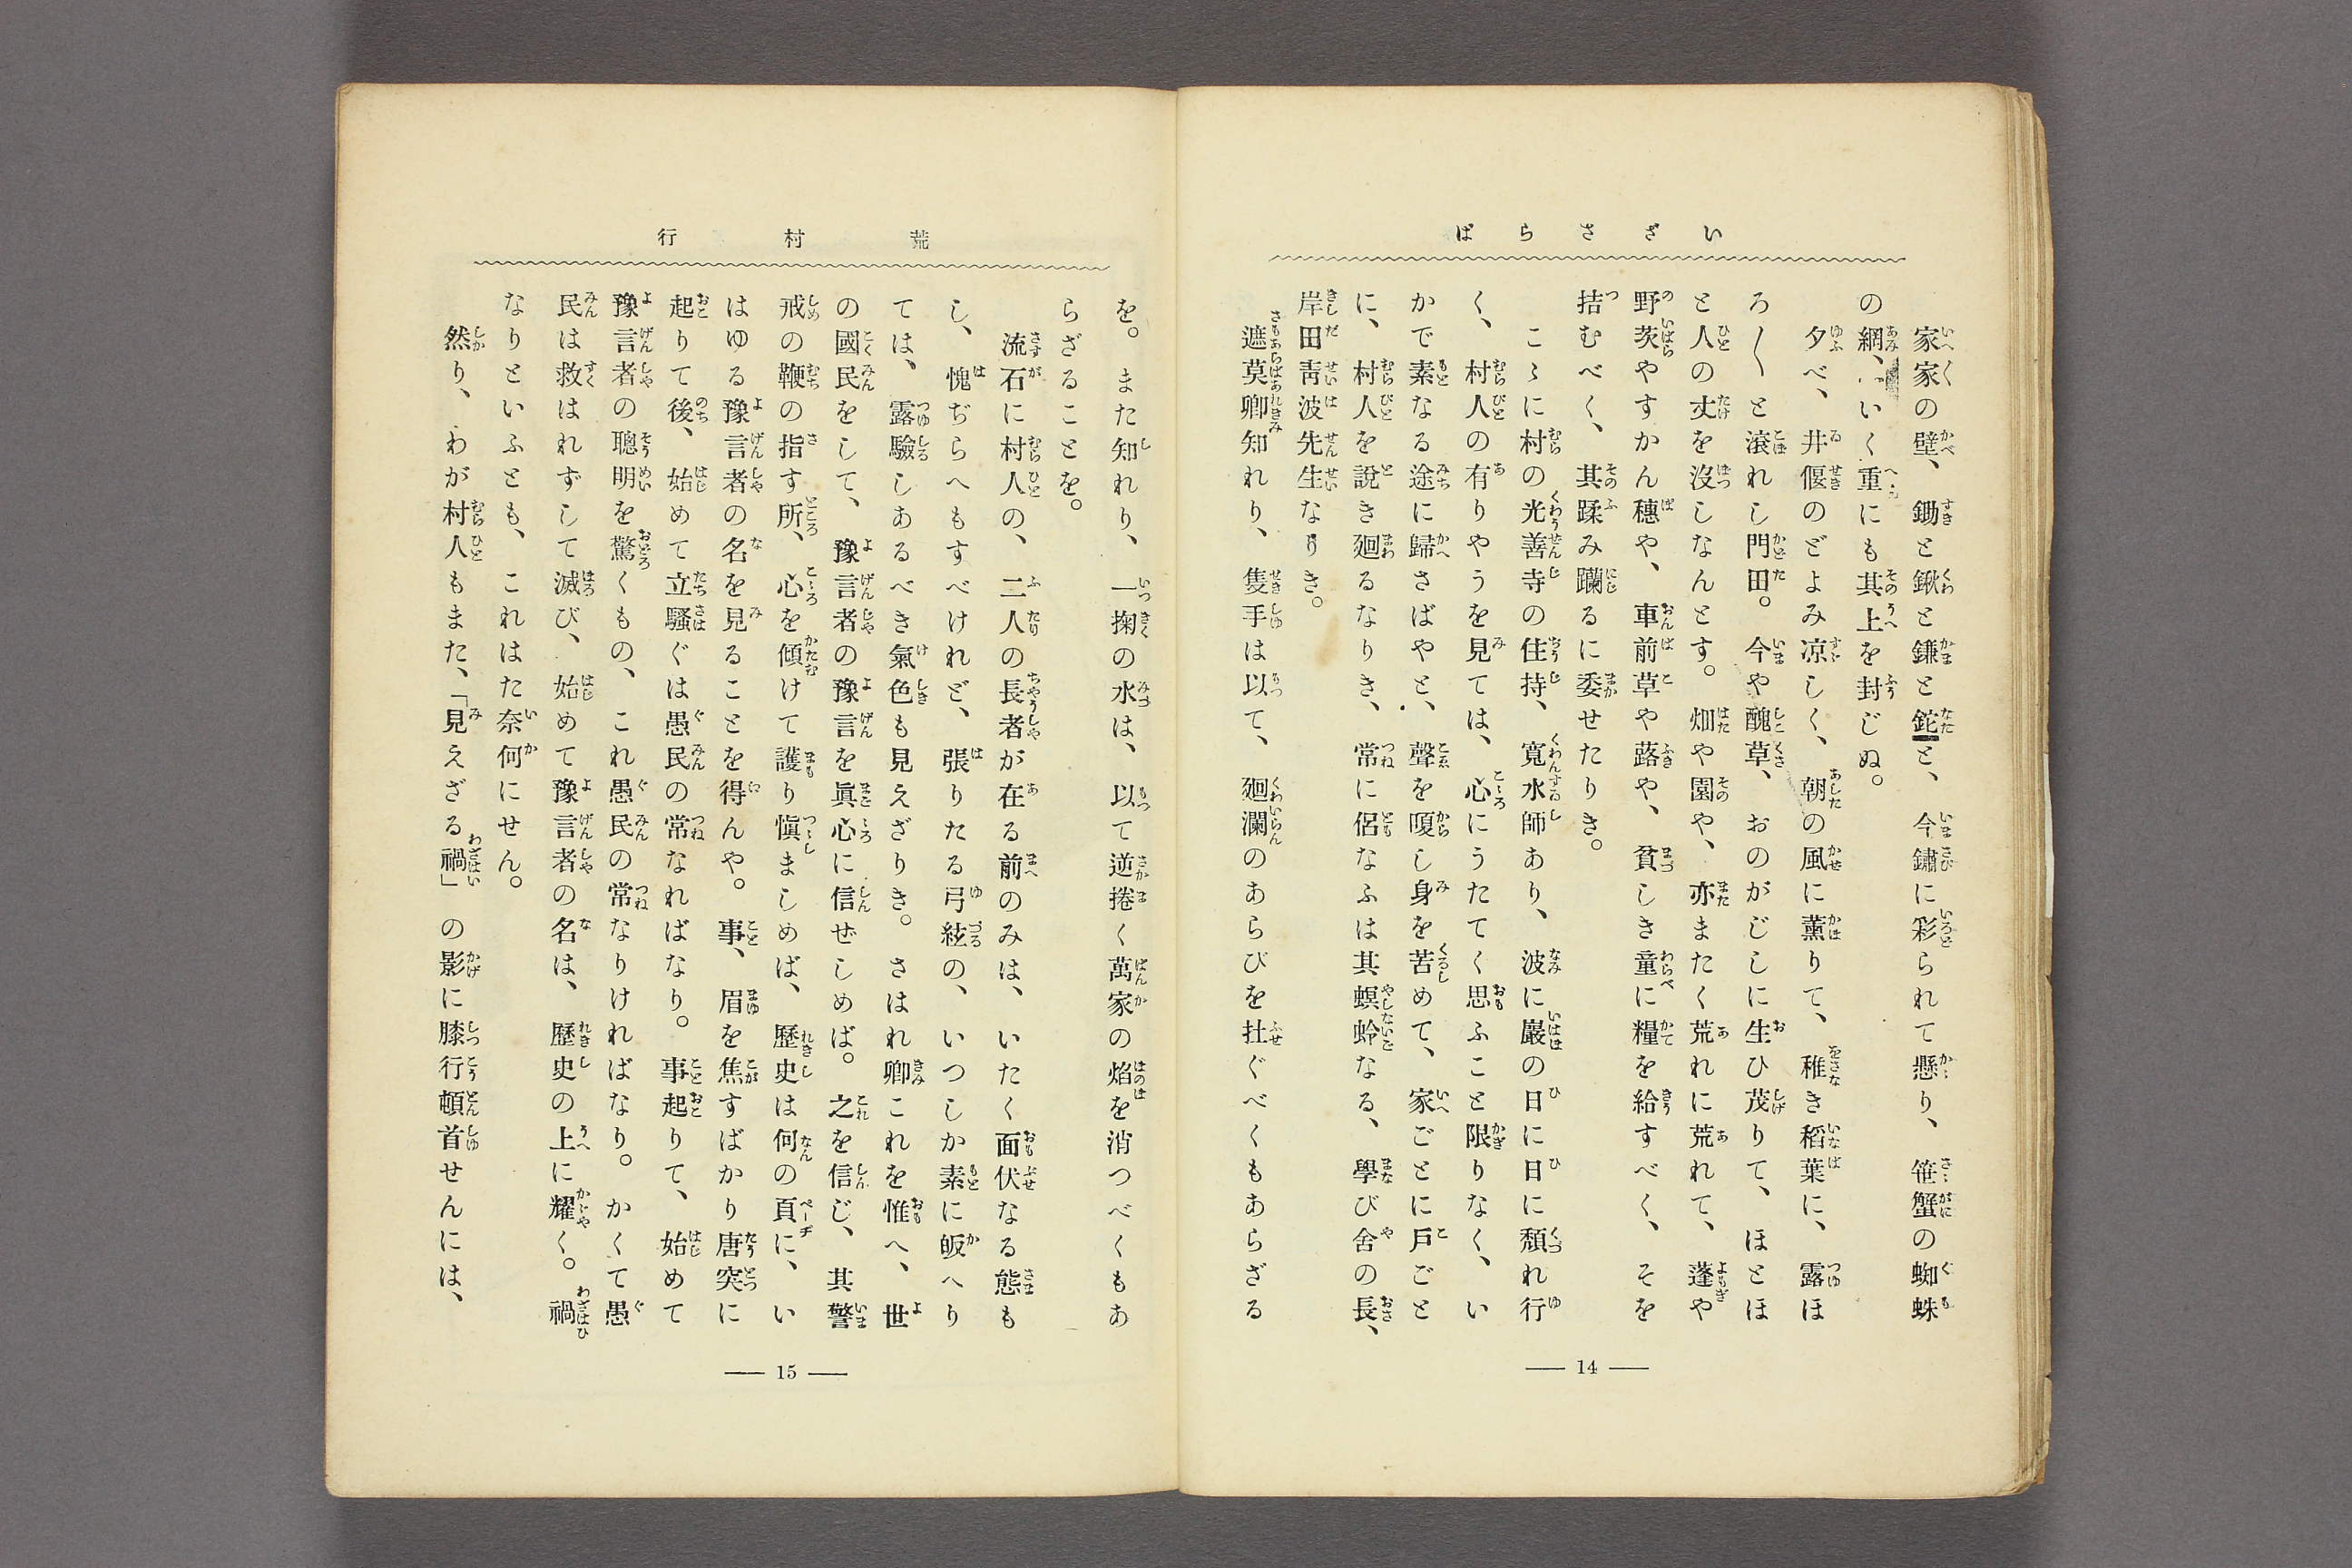 いささらば
家家の壁、鋤と鍬と鎌と鉈と、今鏽に彩られて懸り、笹蟹の蜘蛛
の網、いく重にも其上を封じぬ。
夕べ、井偃のどよみ凉しく、朝の風に薫りて、稚き稻葉に、露ほ
ろ〱と滾れし門田。今や醜草、おのがじしに生ひ茂りて、ほとほ
と人の丈を沒しなんとす。畑や園や、亦またく荒れに荒れて、蓬や
野茨やすかん穗や、車前草や蕗や、貧しき童に糧を給すべく、そを
拮むべく、其蹂み躙るに委せたりき。
こゝに村の光善寺の住持、寬水師あり、波に巖の日に日に頽れ行
く、村人の有りやうを見ては、心にうたてく思ふこと限りなく、い
かで素なる途に歸さばやと、聲を嗄し身を苦めて、家ごとに戶ごと
に、村人を說き廻るなりき、常に侶なふは其螟蛉なる、學び舍の長、
岸田靑波先生なりき。
遮莫卿知れり、隻手は以て、廻瀾のあらびを拄ぐべくもあらざる
— 14 —
荒村行
を。また知れり、一掬の水は、以て逆捲く萬家の焰を消つべくもあ
らざることを。
流石に村人の、二人の長者が在る前のみは、いたく面伏なる態も
し、愧ぢらへもすべけれど、張りたる弓絃の、いつしか素に皈へり
ては、露驗しあるべき氣色も見えざりき。さはれ卿これを惟へ、世
の國民をして、豫言者の豫言を眞心に信ぜしめば。之を信じ、其警
戒の鞭の指す所、心を傾けて護り愼ましめば、歷史は何の頁に、い
はゆる豫言者の名を見ることを得んや。事、眉を焦すばかり唐突に
起りて後、始めて立騷ぐは愚民の常なればなり。事起りて、始めて
豫言者の聰明を驚くもの、これ愚民の常なりければなり。かくて愚
民は救はれずして滅び、始めて豫言者の名は、歷史の上に耀く。禍
なりといふとも、これはた奈何にせん。
然り、わが村人もまた、「見えざる禍」の影に膝行頓首せんには、
— 15 —